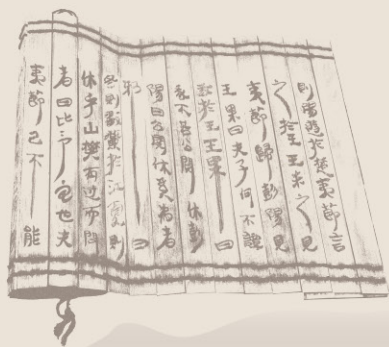 則陽遊於楚夷節言
之於王未之見
夷節歸彭陽見
王果曰夫子何不譚
我於王王果曰
我不若公閱休彭
陽曰公閱休奚為者
邪曰
冬則擉鱉於江夏則
休乎山樊有過而問
者曰此予宅也夫
夷節已不能